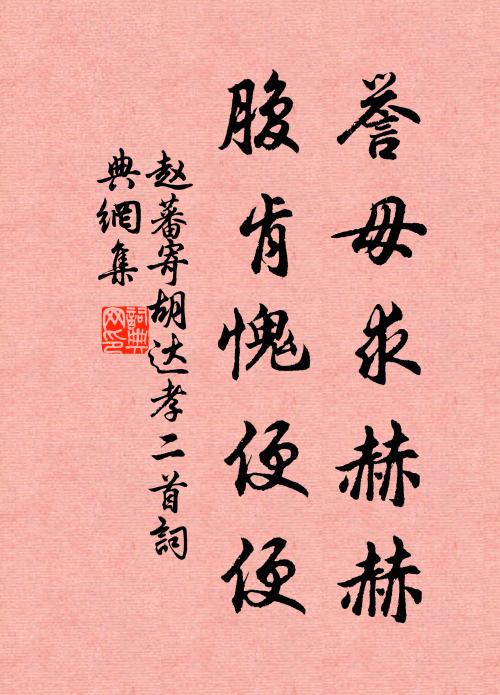 誉毋求赫赫
腹肯愧便便
赵蕃寄胡达孝二首词
典網集
詞典網印